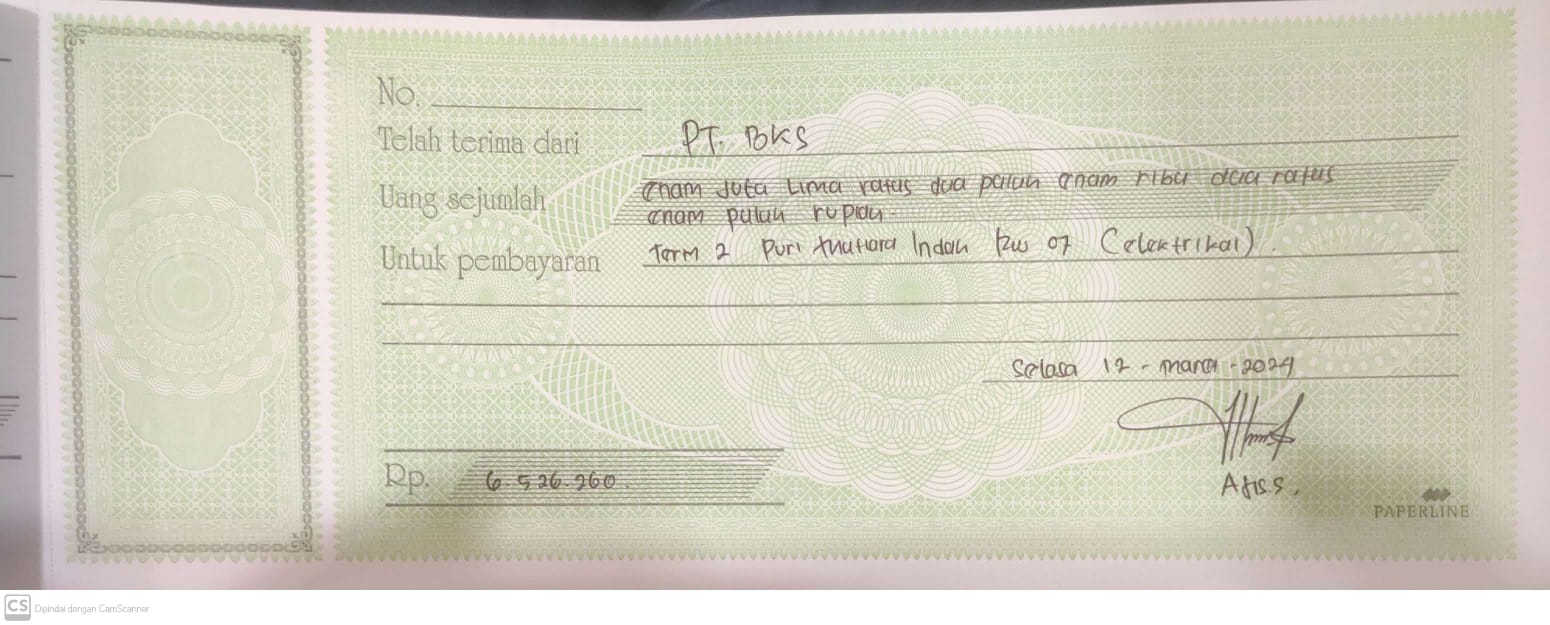 No.
Telah terima dari PT. BKS
Uang sejumlah enam juta Lima ratus dua puluh enam ribu dua ratus
enam puluh rupiah.
Untuk pembayaran Term 2 Puri Mutiara Indah 07 (elektrikal).
Selasa 12 - maret - 2024
Rp. 6.526.260.
PAPERLINE
CS Dipindai dengan CamScanner